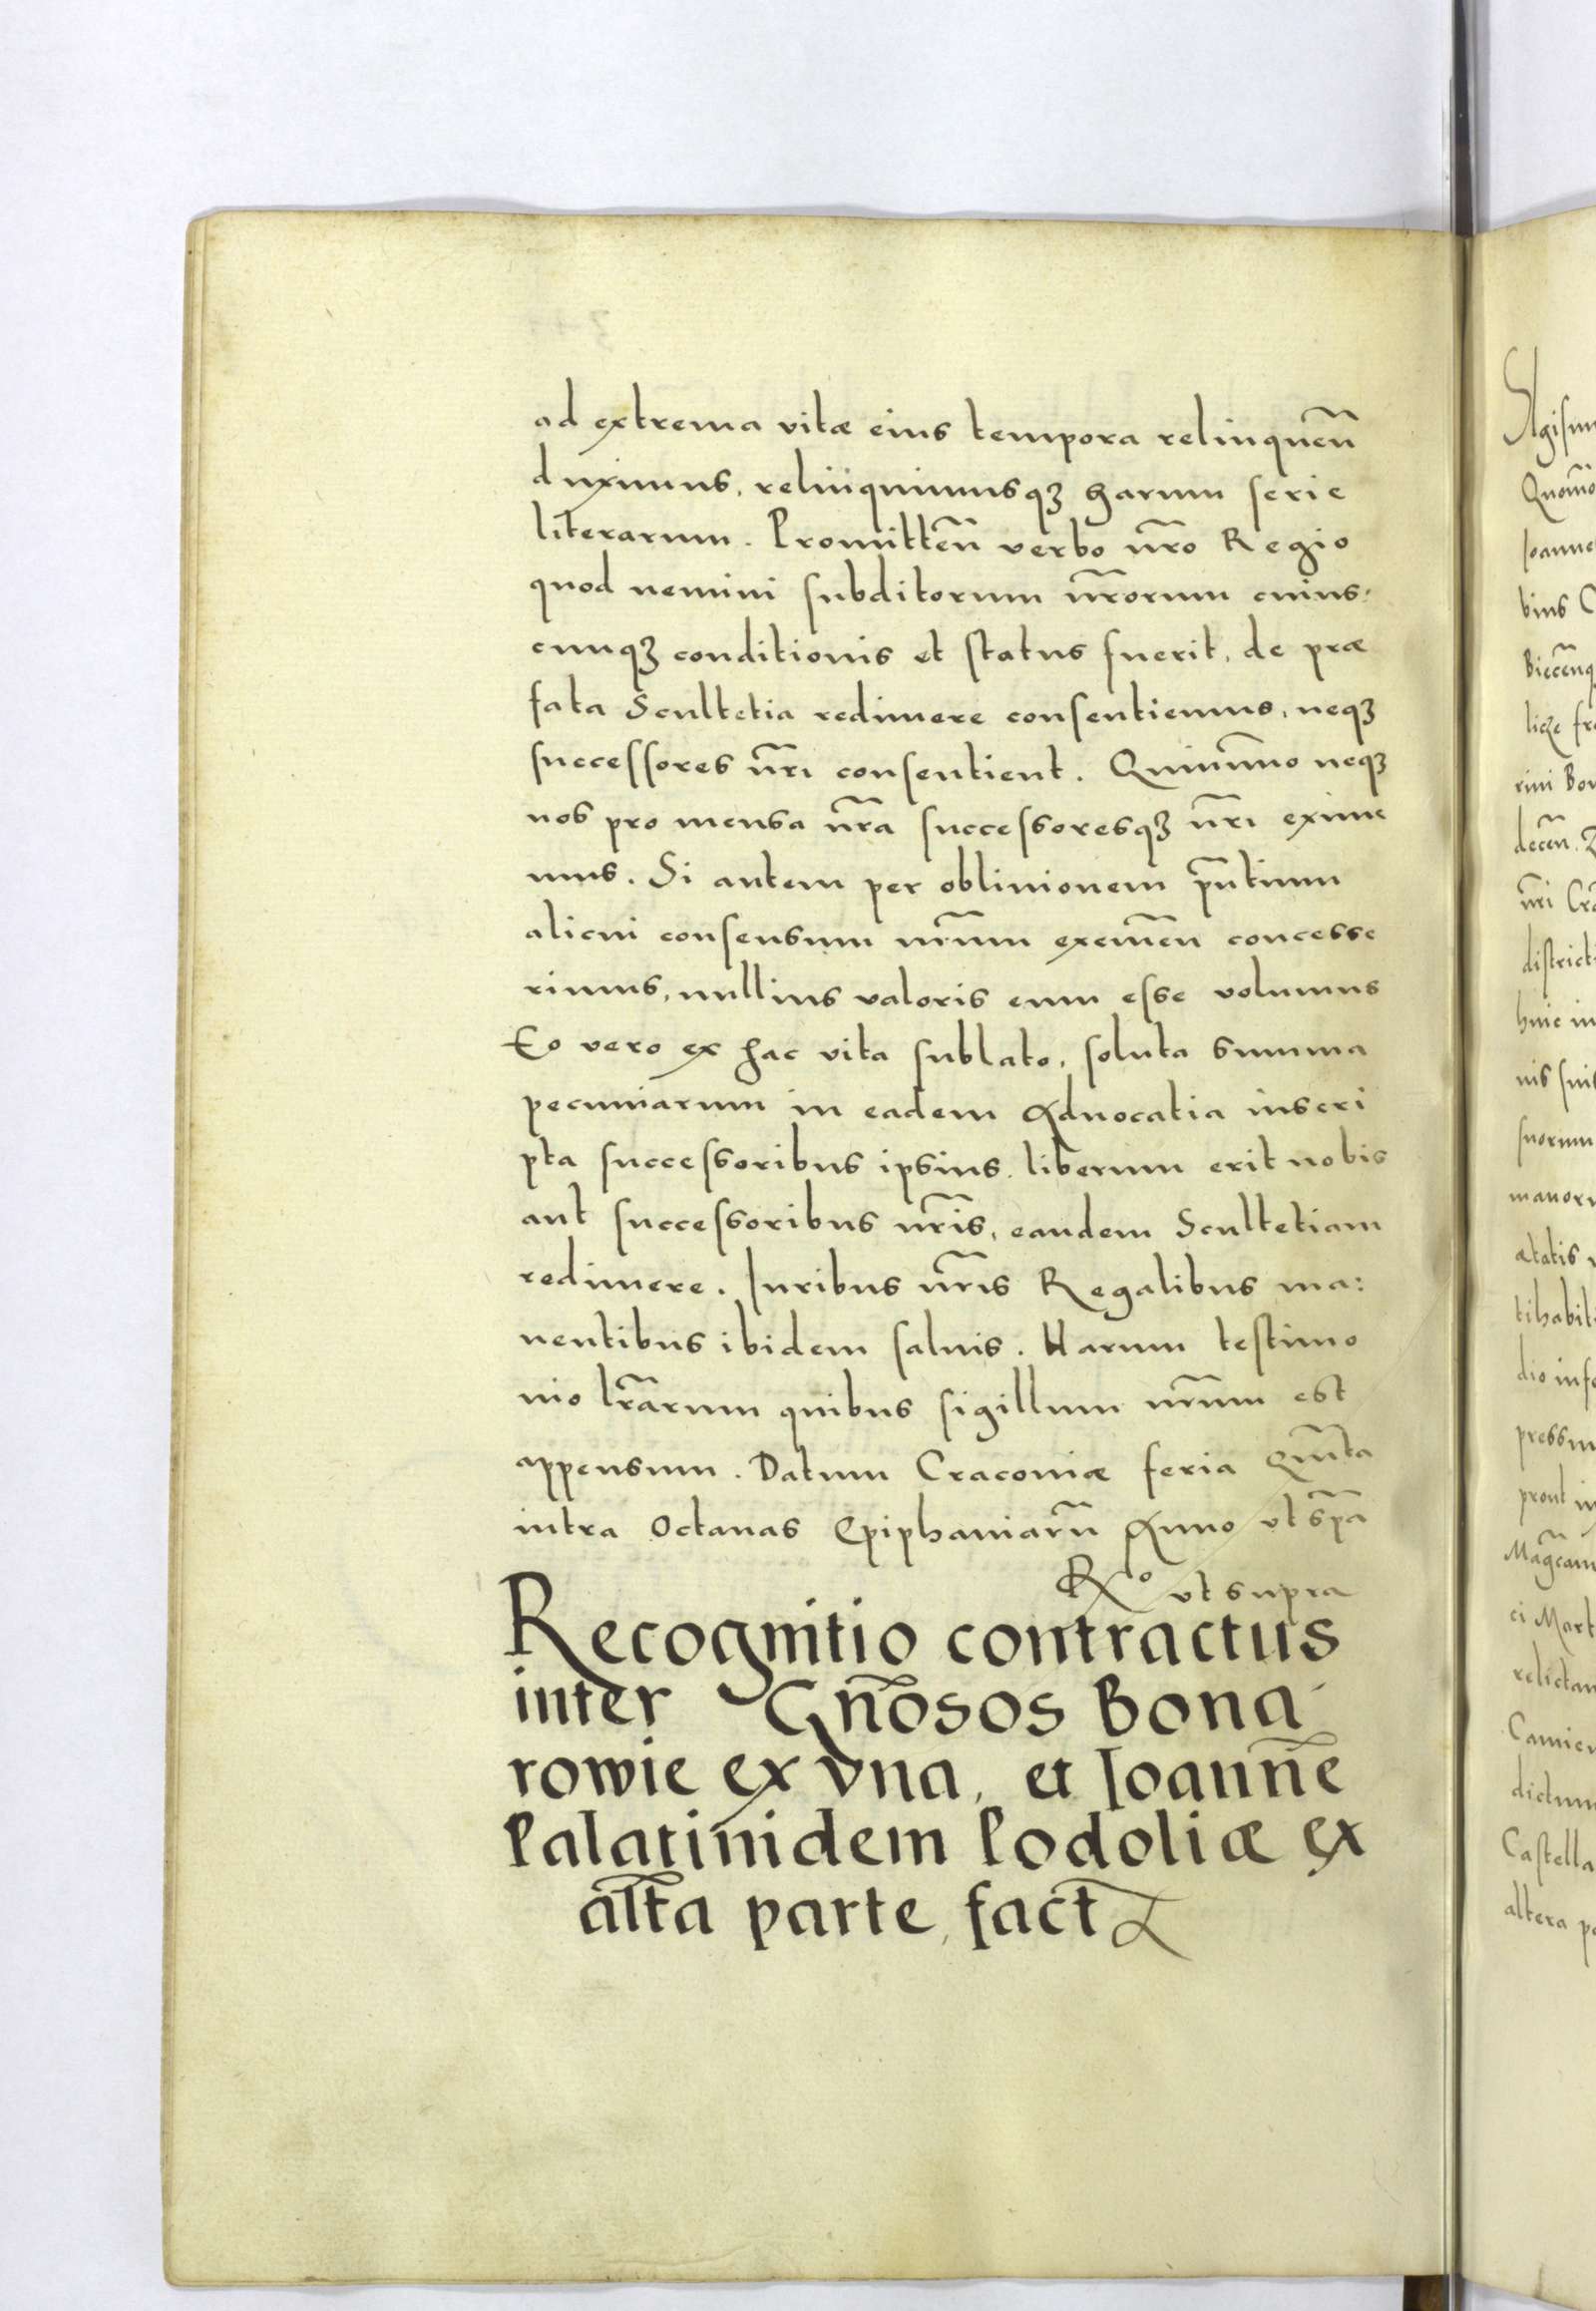 ad extrema vitæ eius tempora relinquen̄
duximus, relinquimusqꝫ harum serie
literarum. Promitten̄ verbo nr̄o Regio
quod nemini subditorum nr̄orum cuius:
cunqꝫ conditionis et status fuerit, de præ
fata Scultetia redimere consentiemus, neqꝫ
successores nr̄i consentient. Quinim̄o neqꝫ
nos pro mensa nr̄a successoresqꝫ nr̄i exime
mus. Si autem per obliuionem pn̄tium
alicui consensum nr̄um exemen̄ concesse
rimus, nullius valoris eum esse volumus
Eo vero ex hac vita sublato, soluta summa
pecuniarum in eadem Aduocatia inscri
pta successoribus ipsius, liberum erit nobis
aut successoribus nr̄is, eandem Scultetiam
redimere. Iuribus nr̄is Regalibus ma:
nentibus ibidem saluis. Harum testimo
nio lr̄arum quibus sigillum nr̄um est
appensum. Datum Cracoviæ feria Quīta
intra Octauas Epiphaniarū Anno vt sp̄a
Rº vt supra
Recognitio contractus
inter Gn̄osos Bona
rowie ex vna, et Ioann̄e
Palatinidem Podoliæ ex
alt̄a parte, fact̄
Sigism
Quomo
Ioanne
bius C
Biecēnq
licze fr
rini Bon
decēn. Z
nr̄i Cra
district
huic in
nis suis
suorum
manoru
ætatis
tihabit
dio inf
pressu
prout in
Maḡcam
ci Mart
relictam
Camien
dictum
Castella
altera p